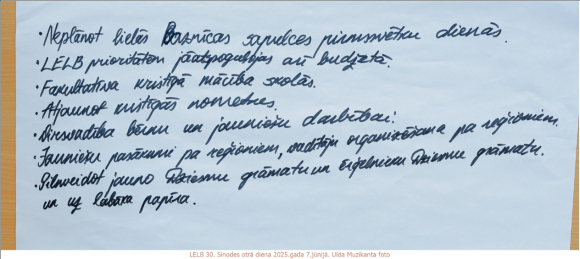 · Neplānot lielās Baznīcas sapulces pirmssvētku dienās.
· LELB prioritātēm jāatspoguļojas arī budžetā.
· Fakultatīva kristīgā mācība skolās.
· Atjaunot kristīgās nometnes.
· Dievsvadība bērnu un jauniešu darbībai!
· Jauniešu pasākumi pa reģioniem, vadītāju organizēšana pa reģioniem.
· Pilnveidot jauno Dziesmu grāmatu un ērģelnieku Dziesmu grāmatu.
un uz labāka papīra.
LELB 30. Sinodes otrā diena 2025.gada 7.jūnijā. Ulda Muzikanta foto